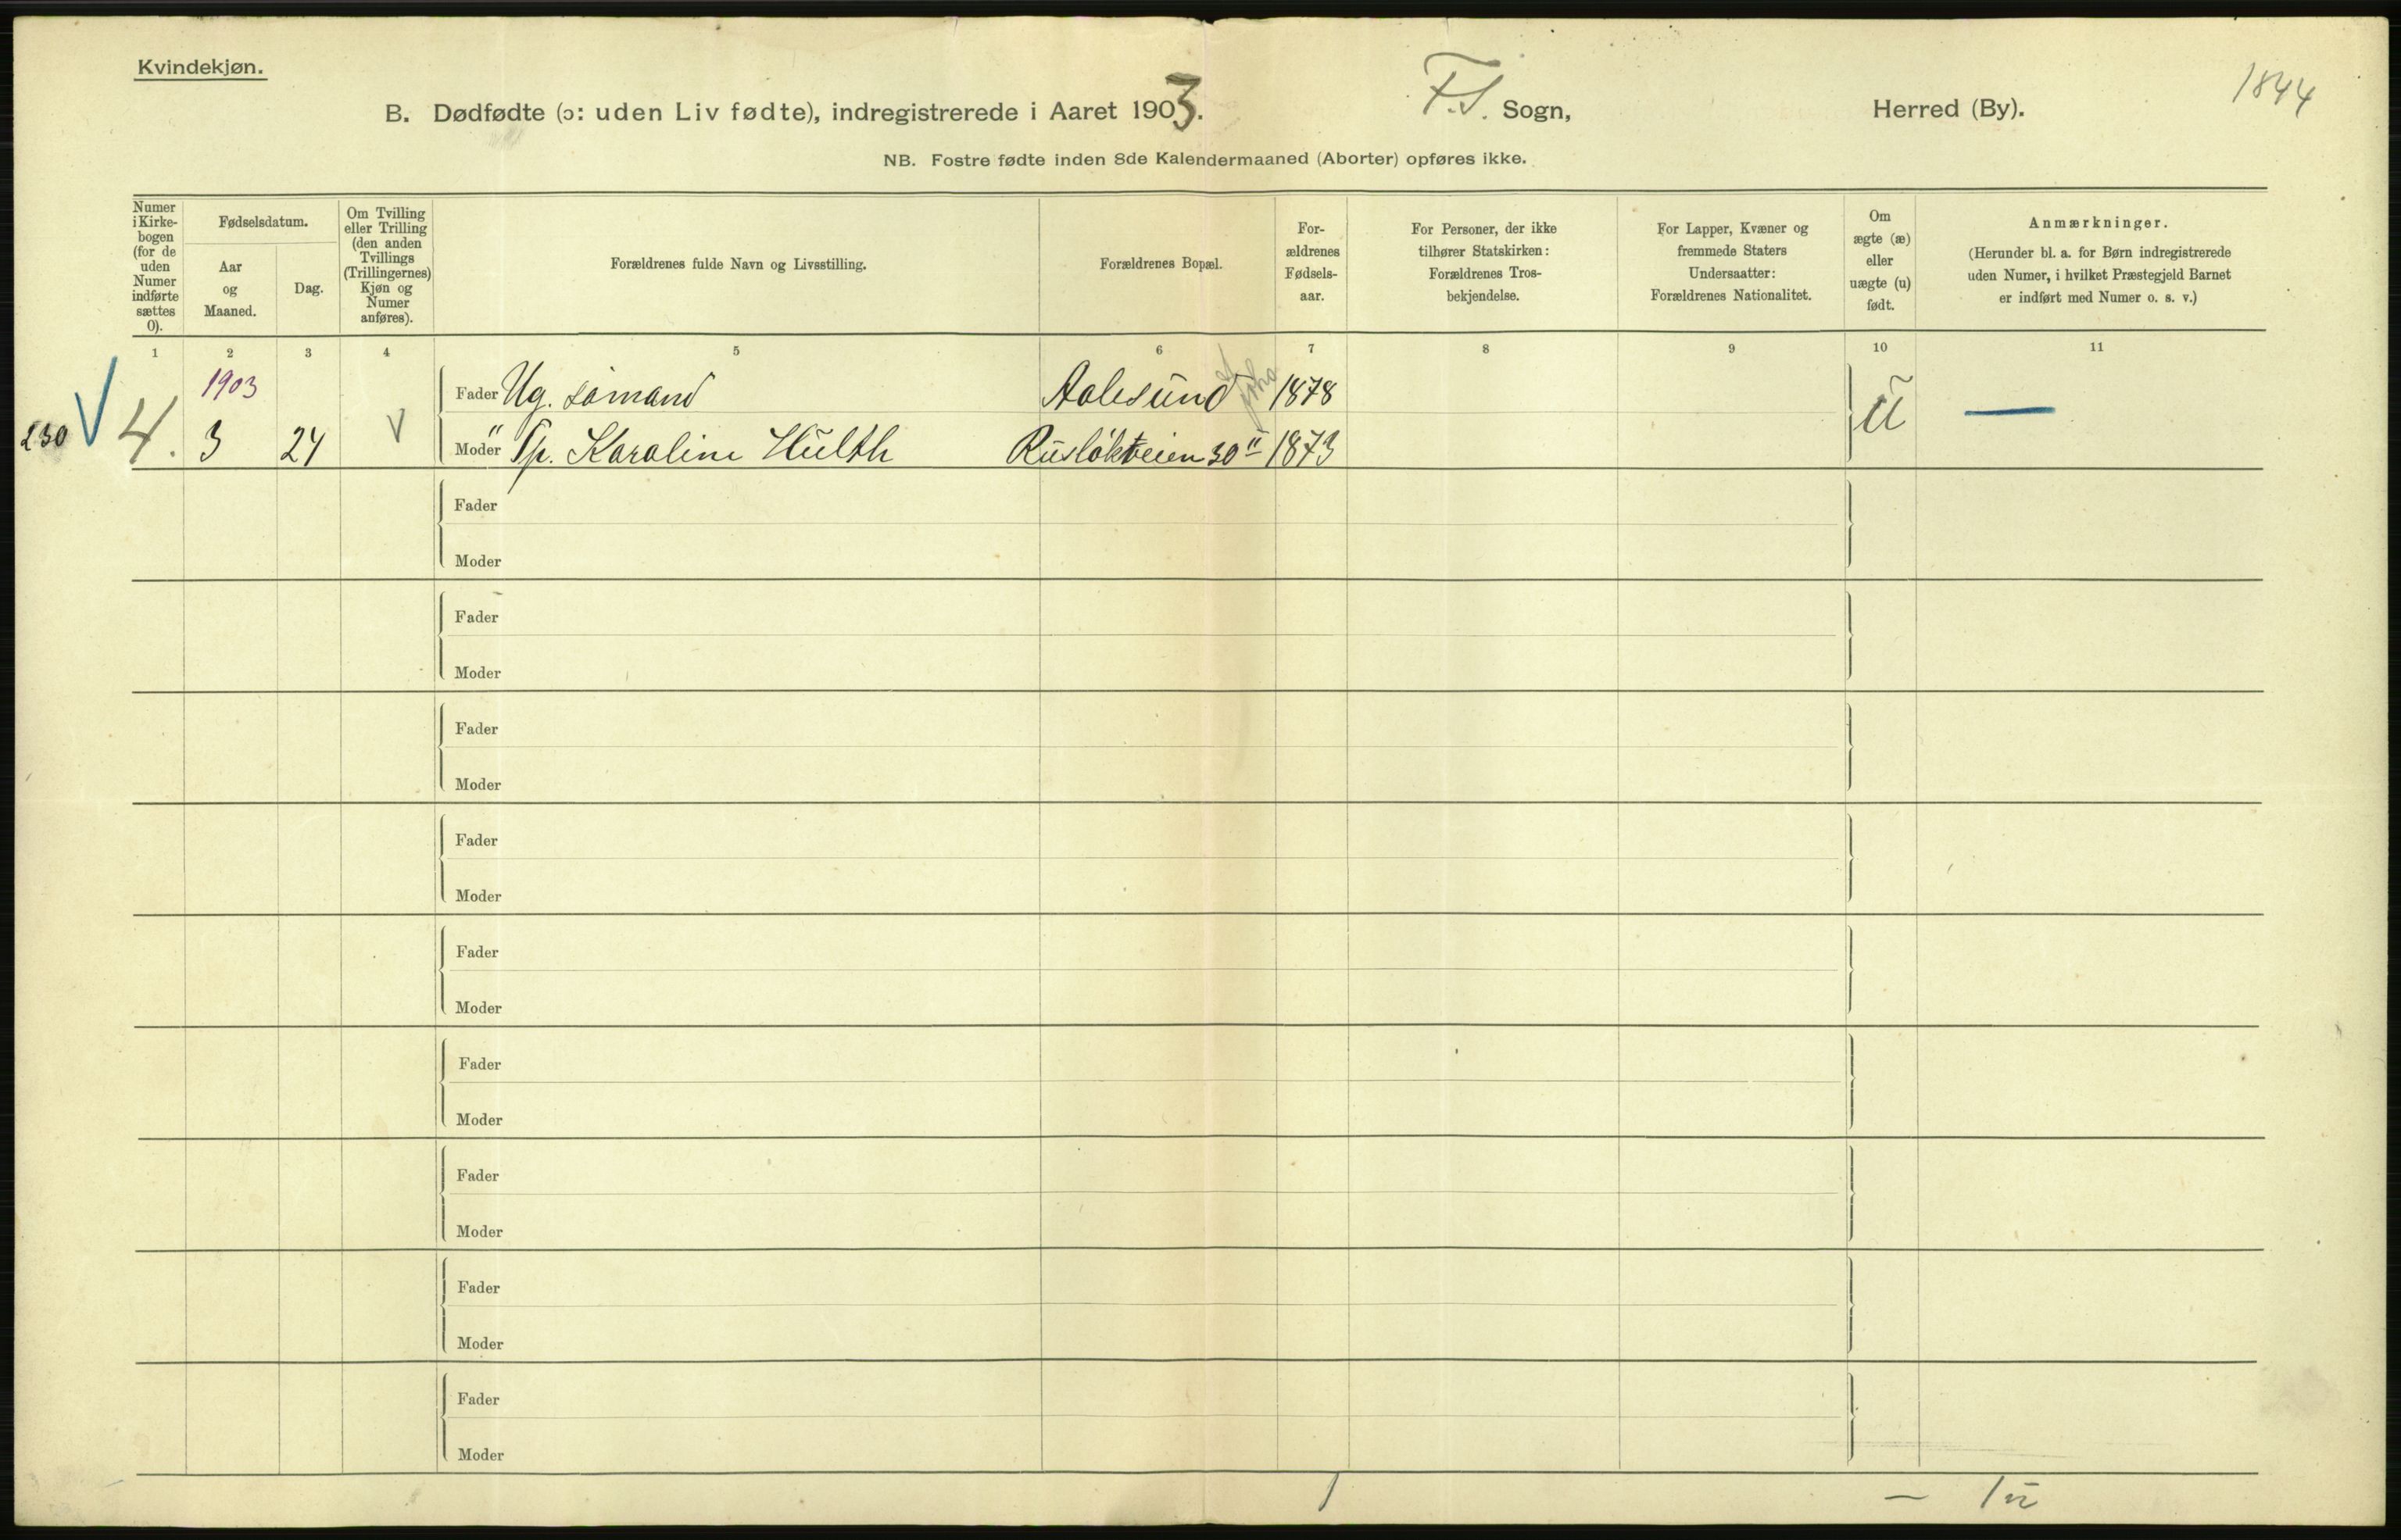 Kvindekjøn.
1844
B. Dødfødte (ɔ: uden Liv fødte), indregistrerede i Aaret 1903. F.S. Sogn, Herred (By).
NB. Fostre fødte inden 8de Kalendermaaned (Aborter) opføres ikke.
Numer
i Kirke-
bogen
(for de
uden
Numer
indførte
sættes
0).
Fødselsdatum.
Aar
og
Maaned.
Dag.
Om Tvilling
eller Trilling
(den anden
Tvillings
(Trillingernes)
Kjøn og
Numer
anføres).
Forældrenes fulde Navn og Livsstilling.
Forældrenes Bopæl.
For-
ældrenes
Fødsels-
aar.
For Personer, der ikke
tilhører Statskirken:
Forældrenes Tros-
bekjendelse.
For Lapper, Kvæner og
fremmede Staters
Undersaatter:
Forældrenes Nationalitet.
Om
ægte (æ)
eller
uægte (u)
født.
Anmærkninger.
(Herunder bl. a. for Børn indregistrerede
uden Numer, i hvilket Præstegjeld Barnet
er indført med Numer o. s. v.)
1 2 3 4 5 6 7 8 9 10 11
1903
Fader Ug. sømand Aalesund 1878
230 4. 3 24 Moder Tp. Karoline Hulth Rusløkveien 30 II 1873 u —
Fader
Moder
Fader
Moder
Fader
Moder
Fader
Moder
Fader
Moder
Fader
Moder
Fader
Moder
Fader
Moder
Fader
Moder
1 — 1 u